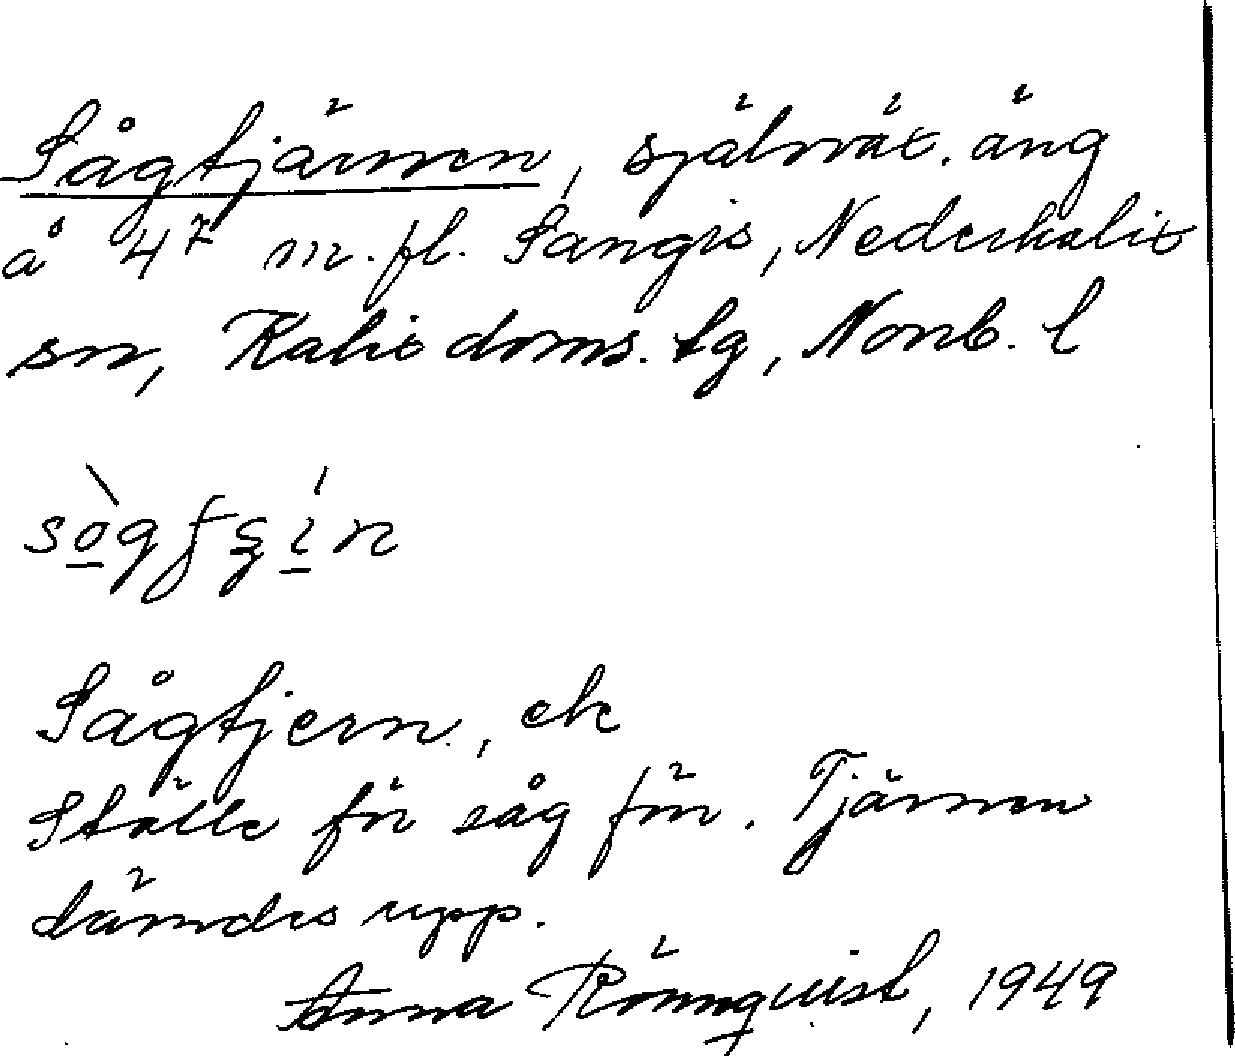 Sågtjärnen, självväx. äng
å 4⁷ m. fl. Sangis, Nederkalix
sn, Kalix doms. tg, Norrb. l
Sågtjern, ek
Ställe för såg förr. Tjärnen
dämdes upp.
Anna Rönnquist, 1949